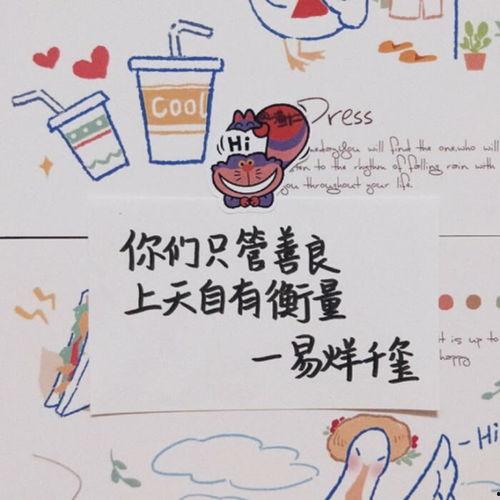 Cool
Hi
Dress
you will find the one, who will
to the rhythm of falling rain with
you throughout your life.
你们只管善良
上天自有衡量
一易烊千玺
it is up to
happy
-Hi